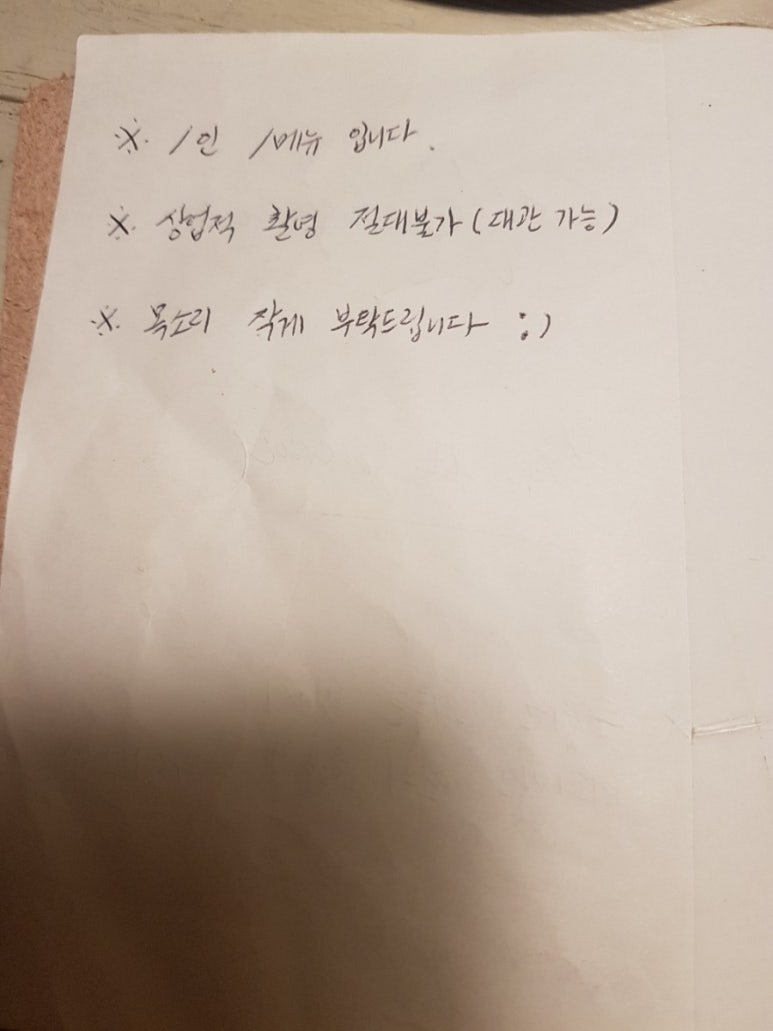 ※ 1인 1메뉴 입니다.
※ 상업적 촬영 절대불가 (대관 가능)
※ 목소리 작게 부탁드립니다 :)